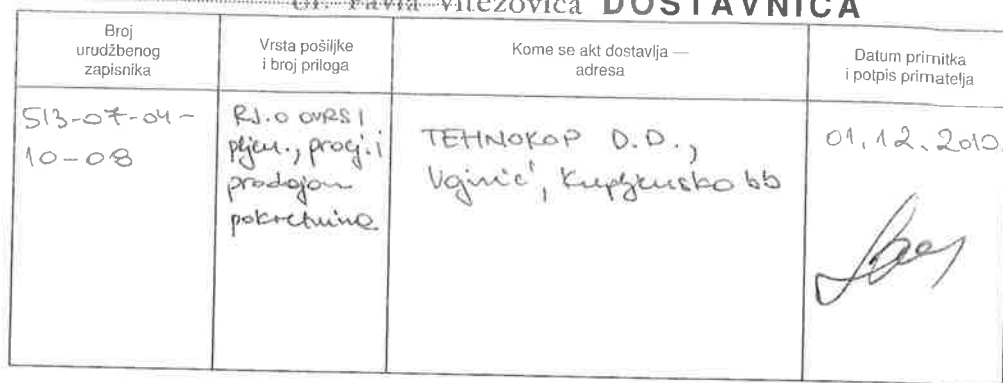 Ul. Pavla Vitezovića DOSTAVNICA
Broj
urudžbenog
zapisnika
Vrsta pošiljke
i broj priloga
Kome se akt dostavlja —
adresa
Datum primitka
i potpis primatelja
513-07-04-
10-08
RJ. o OVRSI
pljen., procj. i
prodajom
pokretnina
TEHNOKOP D.D.,
Vginić, Kupljensko bb
01.12.2010.